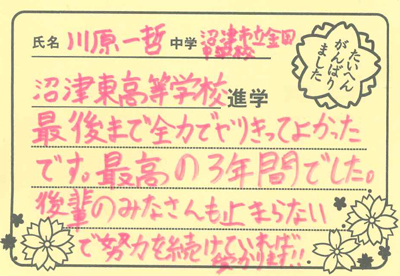 氏名 川原一哲 中学 沼津市立金岡中学校
たいへん
がんばり
ました
沼津東高等学校 進学
最後まで全力でやりきってよかった
です。最高の3年間でした。
後輩のみなさんも止まらない
で努力を続けていれば
受かります!!